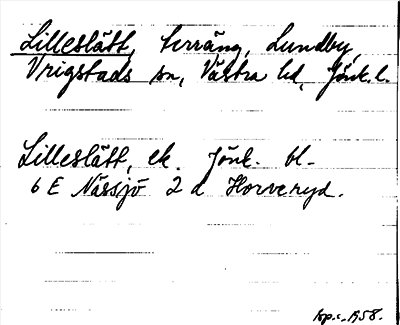 Lilleslätt, terräng, Lundby,
Vrigstads sn, Västra hd, Jönk. l.
Lilleslätt, ek. Jönk. bl.
6 E Nässjö 2 d Horveryd.
top.c. 1958.